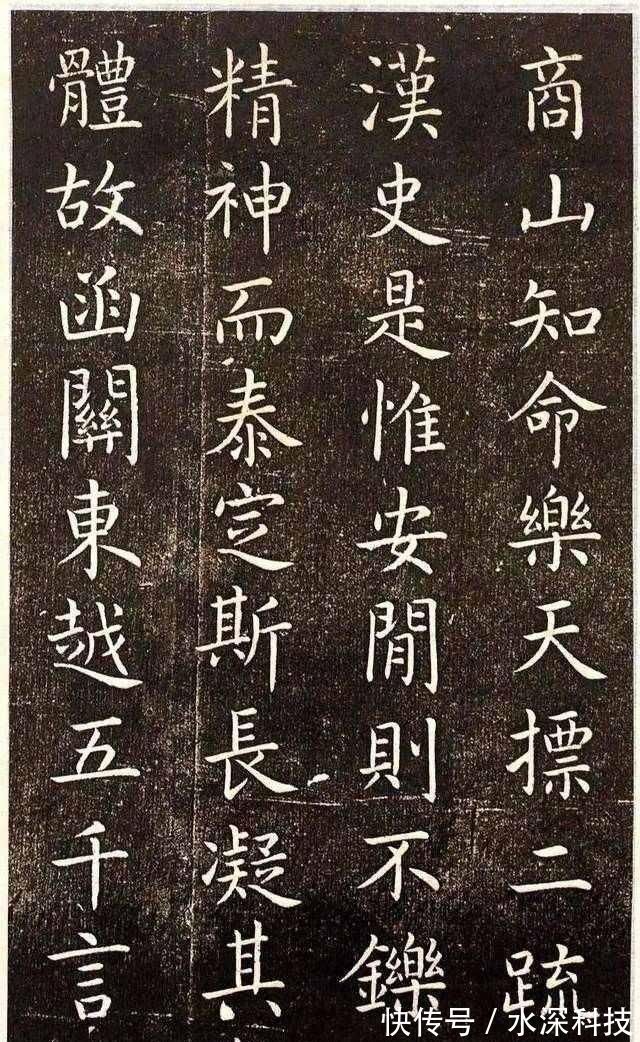 商山知命樂天標二疏
漢史是惟安閒則不鑠
精神而泰定斯長凝其
體故函關東越五千言
快传号 / 水深科技